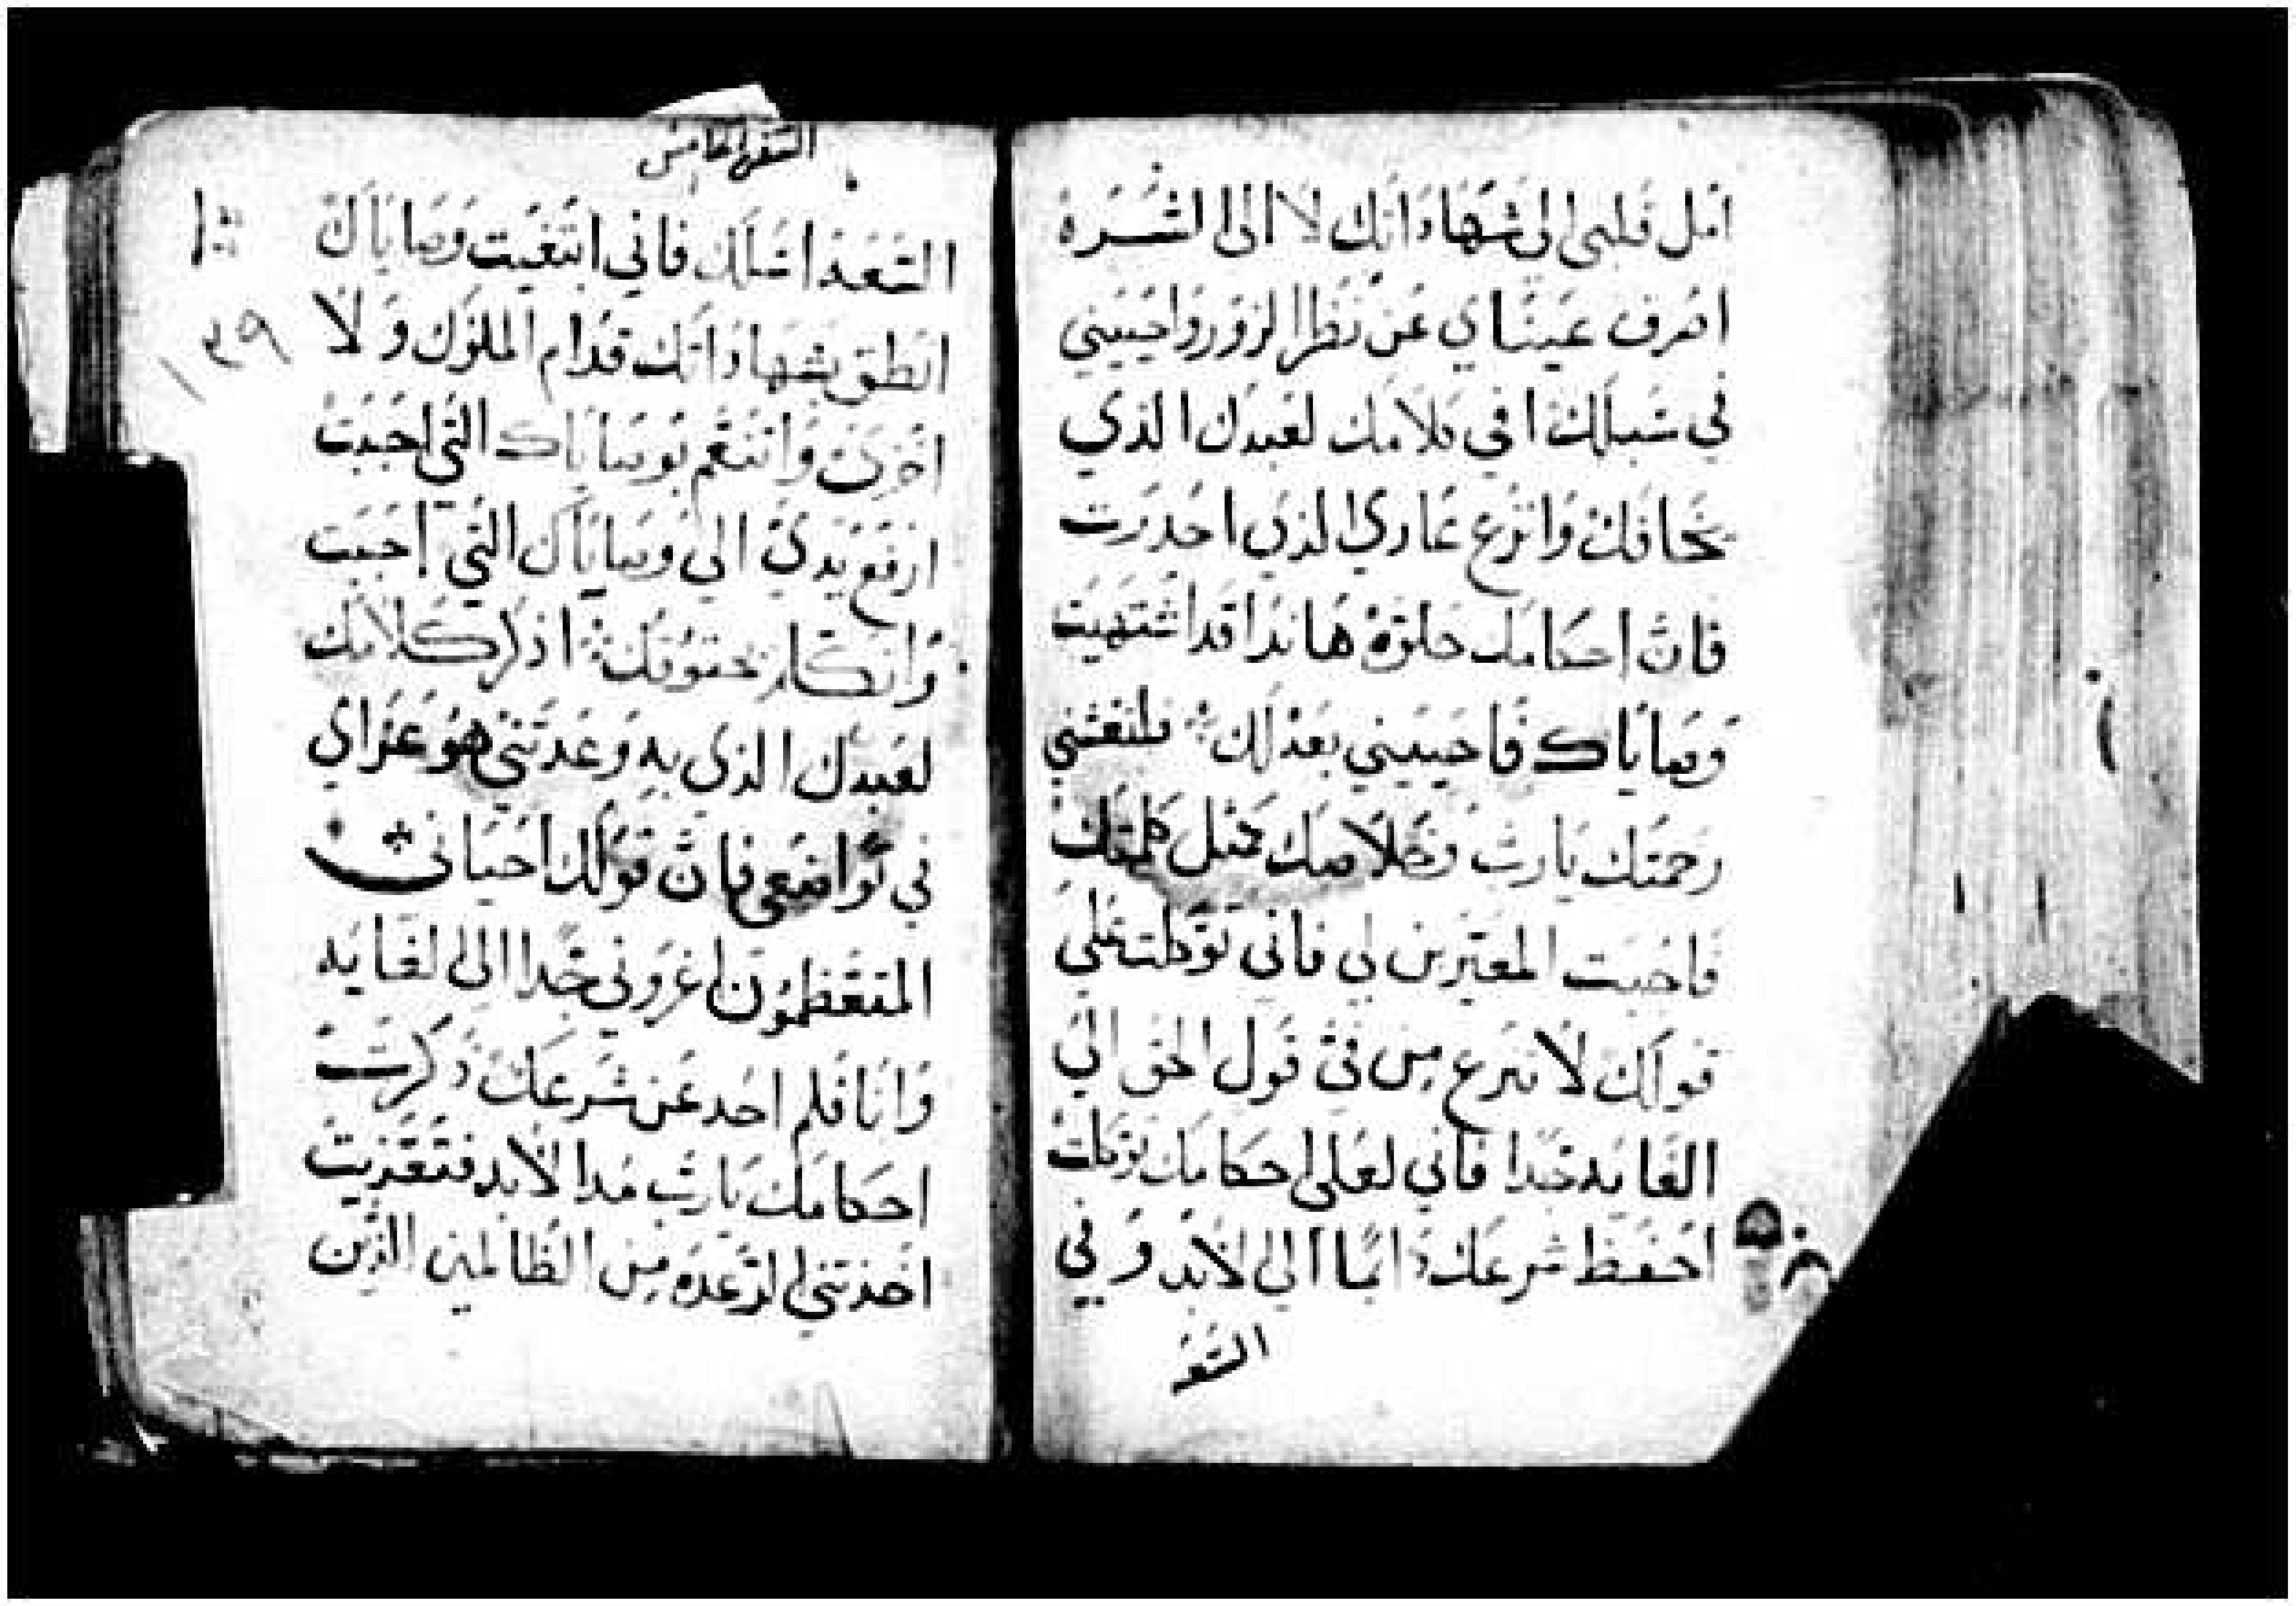 امل قلبي الى شهاداتك لا الى الشره
اصرف عيناي عن نظر الزور واحييني
في سبلك اقي كلامك لعبدك الذي
يخافك وانزع عاري الذي احدرت
فان احكامك حلوه هانذا قد اشتهيت
وصاياك فاحييني بعدلك فلتغثني
رحمتك يارب وخلاصك كمثل كلمتك
فاجيب المعيرين لي فاني توكلت على
قولك لا تنزع من في قول الحق الى
الغايه جدا فاني لعلى احكامك توكلت
احفظ شرعك دايما الى الابد وفي
السعه
السفر الخامس
السعه اسلك فاني ابتغيت وصاياك
انطق بشهاداتك قدام الملوك ولا
اخزى واتنعم بوصاياك التي احببت
ارفع يدي الى وصاياك التي احببت
واتكلم بحقوقك اذكر كلامك
لعبدك الذي به وعدتني هو عزاي
في تواضعي فان قولك احياني
المتعظمون اغروني جدا الى الغايه
وانا فلم احد عن شرعك ذكرت
احكامك يارب مدا الابد فتعزيت
اخذتني الرعده من الظالمين الذين
١٣٩